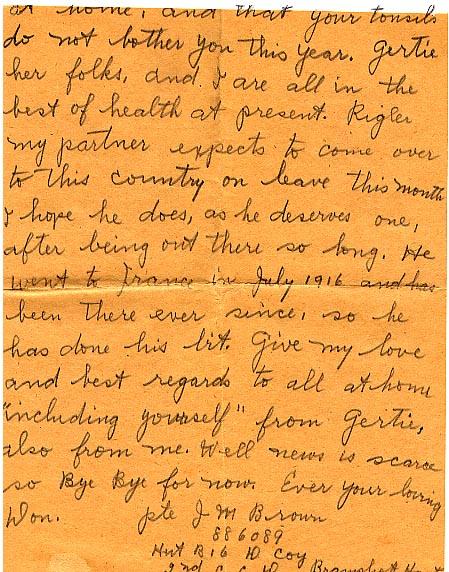 at home, and that your tonsils
do not bother you this year. Gertie
her folks, and I are all in the
best of health at present. Rigler
my partner expects to come over
to this country on leave this month
I hope he does, as he deserves one,
after being out there so long. He
went to France in July 1916 and has
been there ever since, so he
has done his bit. Give my love
and best regards to all at home
"including yourself" from Gertie,
also from me. Well news is scarce
so Bye Bye for now. Ever your loving
Don. pte J M Brown
886089
Hut B16 D Coy
2nd C C D Bramshott